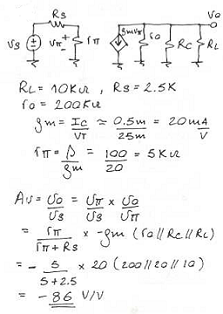 Rs Vo
Vs Vπ + − rπ gmVπ ro Rc RL
RL = 10KΩ, Rs = 2.5K
ro = 200KΩ
gm = Ic/VT ≃ 0.5m/25m = 20 mA/V
rπ = β/gm = 100/20 = 5KΩ
Av = Vo/Vs = Vπ/Vs × Vo/Vπ
= rπ/(rπ + Rs) × -gm (ro // Rc // RL)
= - 5/(5+2.5) × 20 (200 // 20 // 10)
= -86 V/V